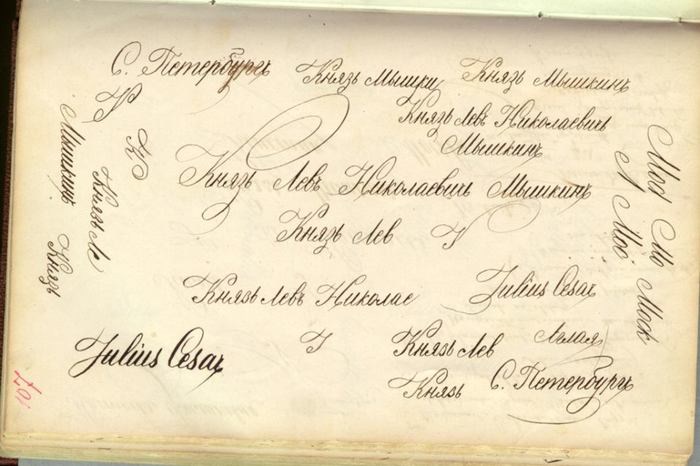 С. Петербургъ
Князь Мышки
Князь Мышкинъ
Князь Левъ Николаевичъ
Мышкинъ
Князь Левъ Николаевичъ Мышкинъ
Князь Лев
Князь Левъ Николае
Julius Cesar
Julius Cesar
Князь Лев
Аглая
Князь
С. Петербургъ
Мышкинъ
Князь
Князь Ле
Мос
Мо
Моск
Моо
107